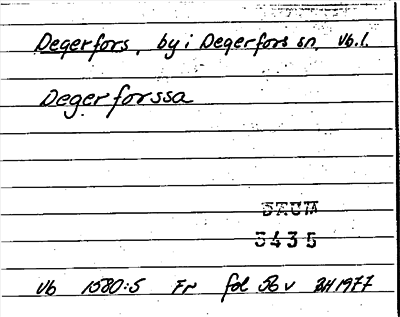 Degerfors, by i Degerfors sn, Vb.l.
Degerforssa
DAUM
3435
Vb 1580:5 Fr fol 56 v 2H 1977